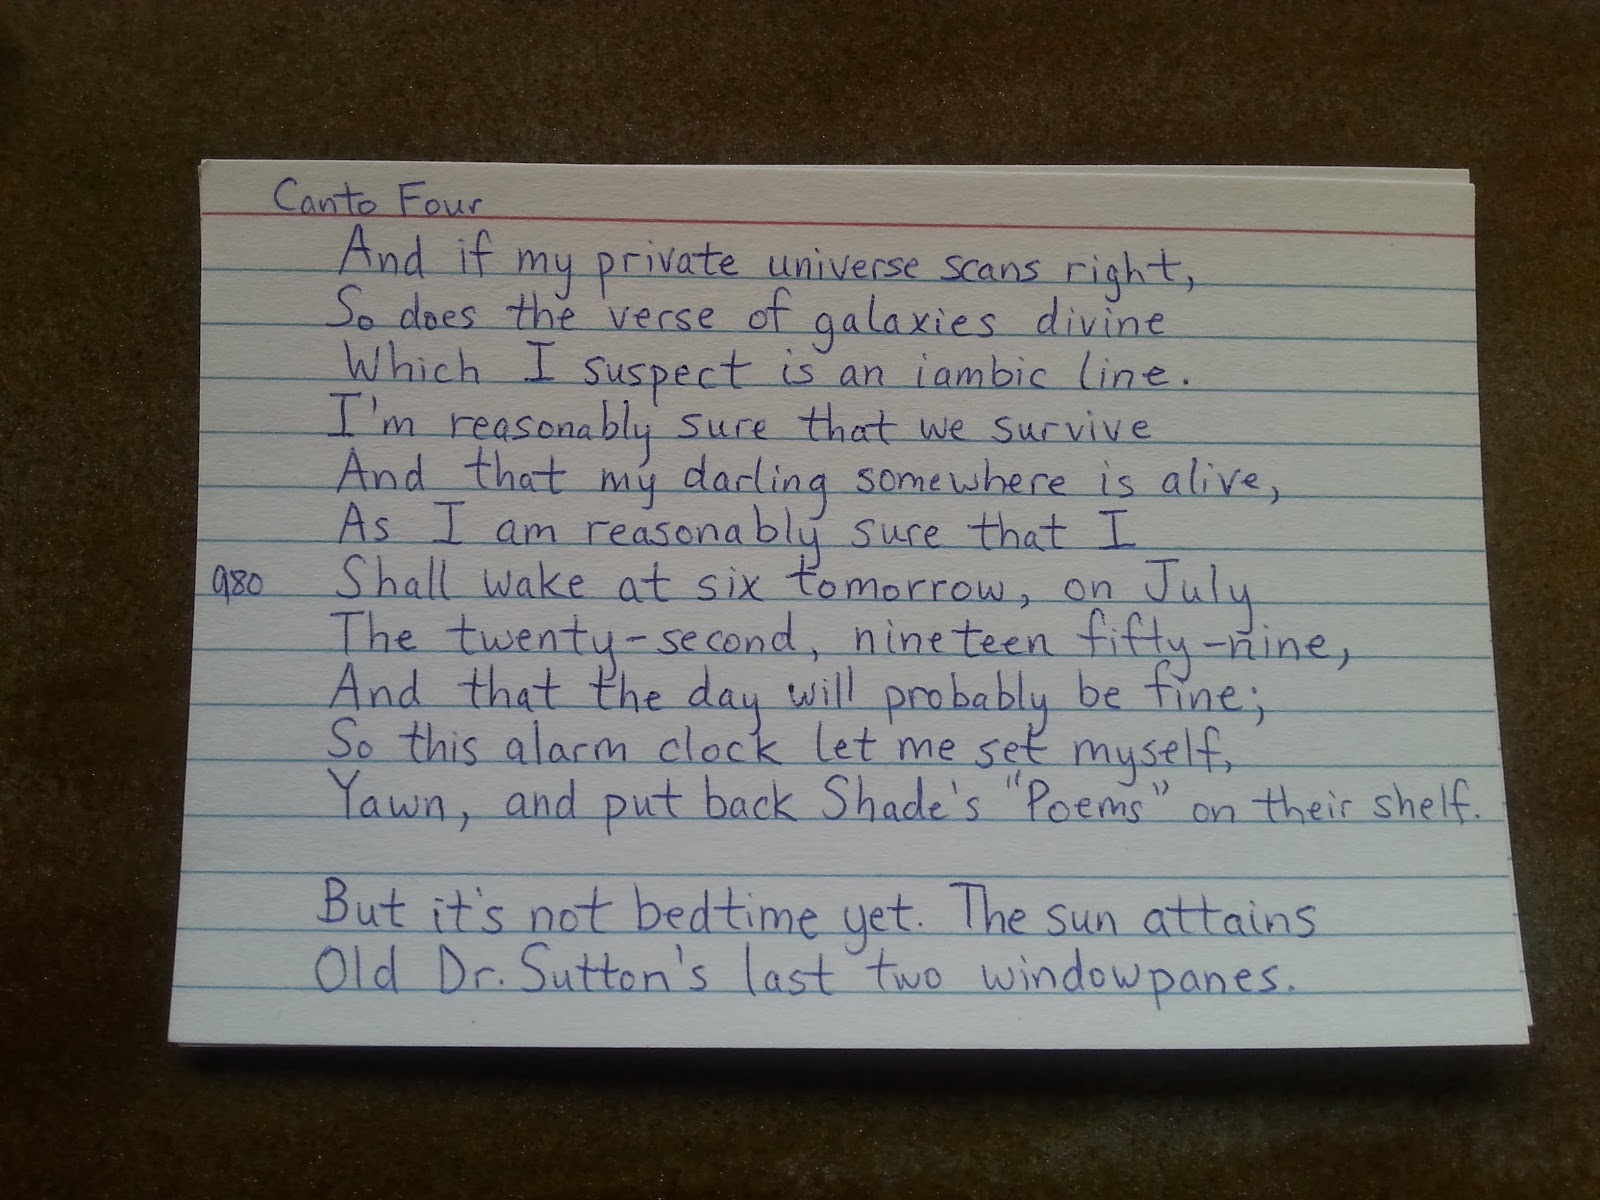 Canto Four
And if my private universe scans right,
So does the verse of galaxies divine
Which I suspect is an iambic line.
I'm reasonably sure that we survive
And that my darling somewhere is alive,
As I am reasonably sure that I
980 Shall wake at six tomorrow, on July
The twenty-second, nineteen fifty-nine,
And that the day will probably be fine;
So this alarm clock let me set myself,
Yawn, and put back Shade's "Poems" on their shelf.
But it's not bedtime yet. The sun attains
Old Dr. Sutton's last two windowpanes.